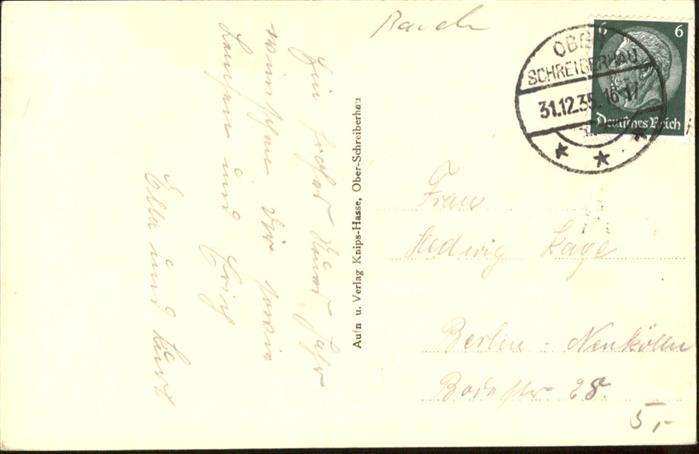 Ein frohes Neues Jahr
wünschen Dir sowie
und Erich
Ella und Kurt
Aufn u. Verlag Knips-Hasse, Ober-Schreiberhau
OBER
SCHREIBERHAU
31.12.35.16-17
6 6
Deutsches Reich
Frau
Hedwig
Berlin-Neukölln
28.
5,-